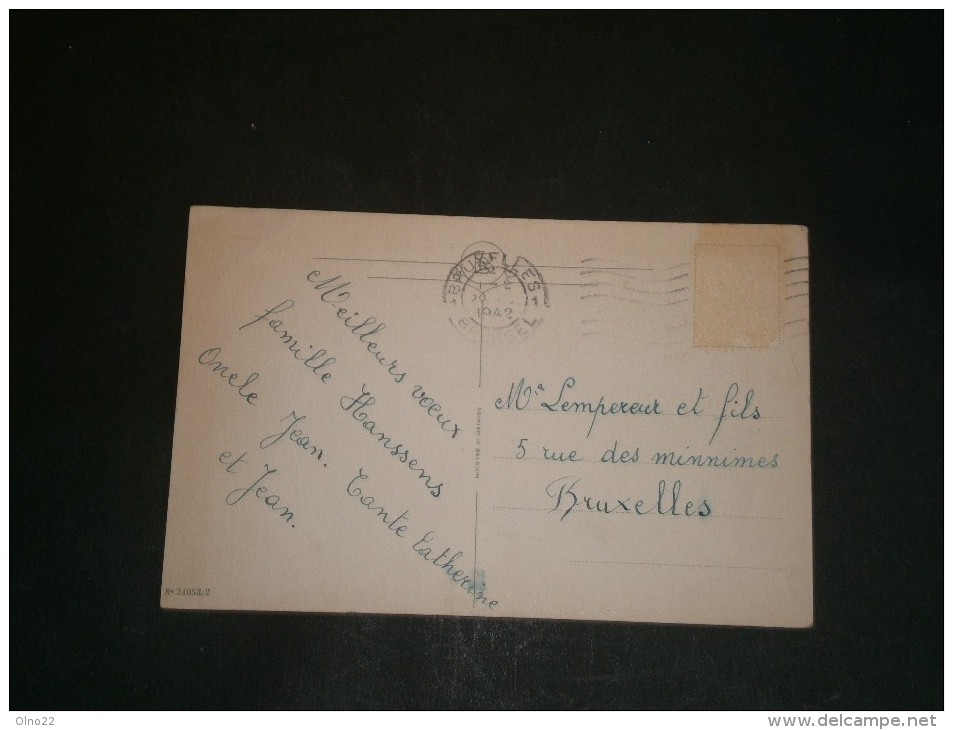 Meilleurs voeux
famille Hanssens
Oncle Jean. Tante Catherine
et Jean.
BRUXELLES
1942
BRUSSEL
Mr Lempereur et fils
5 rue des minnimes
Bruxelles
No 24053/2
Olno22
www.delcampe.net